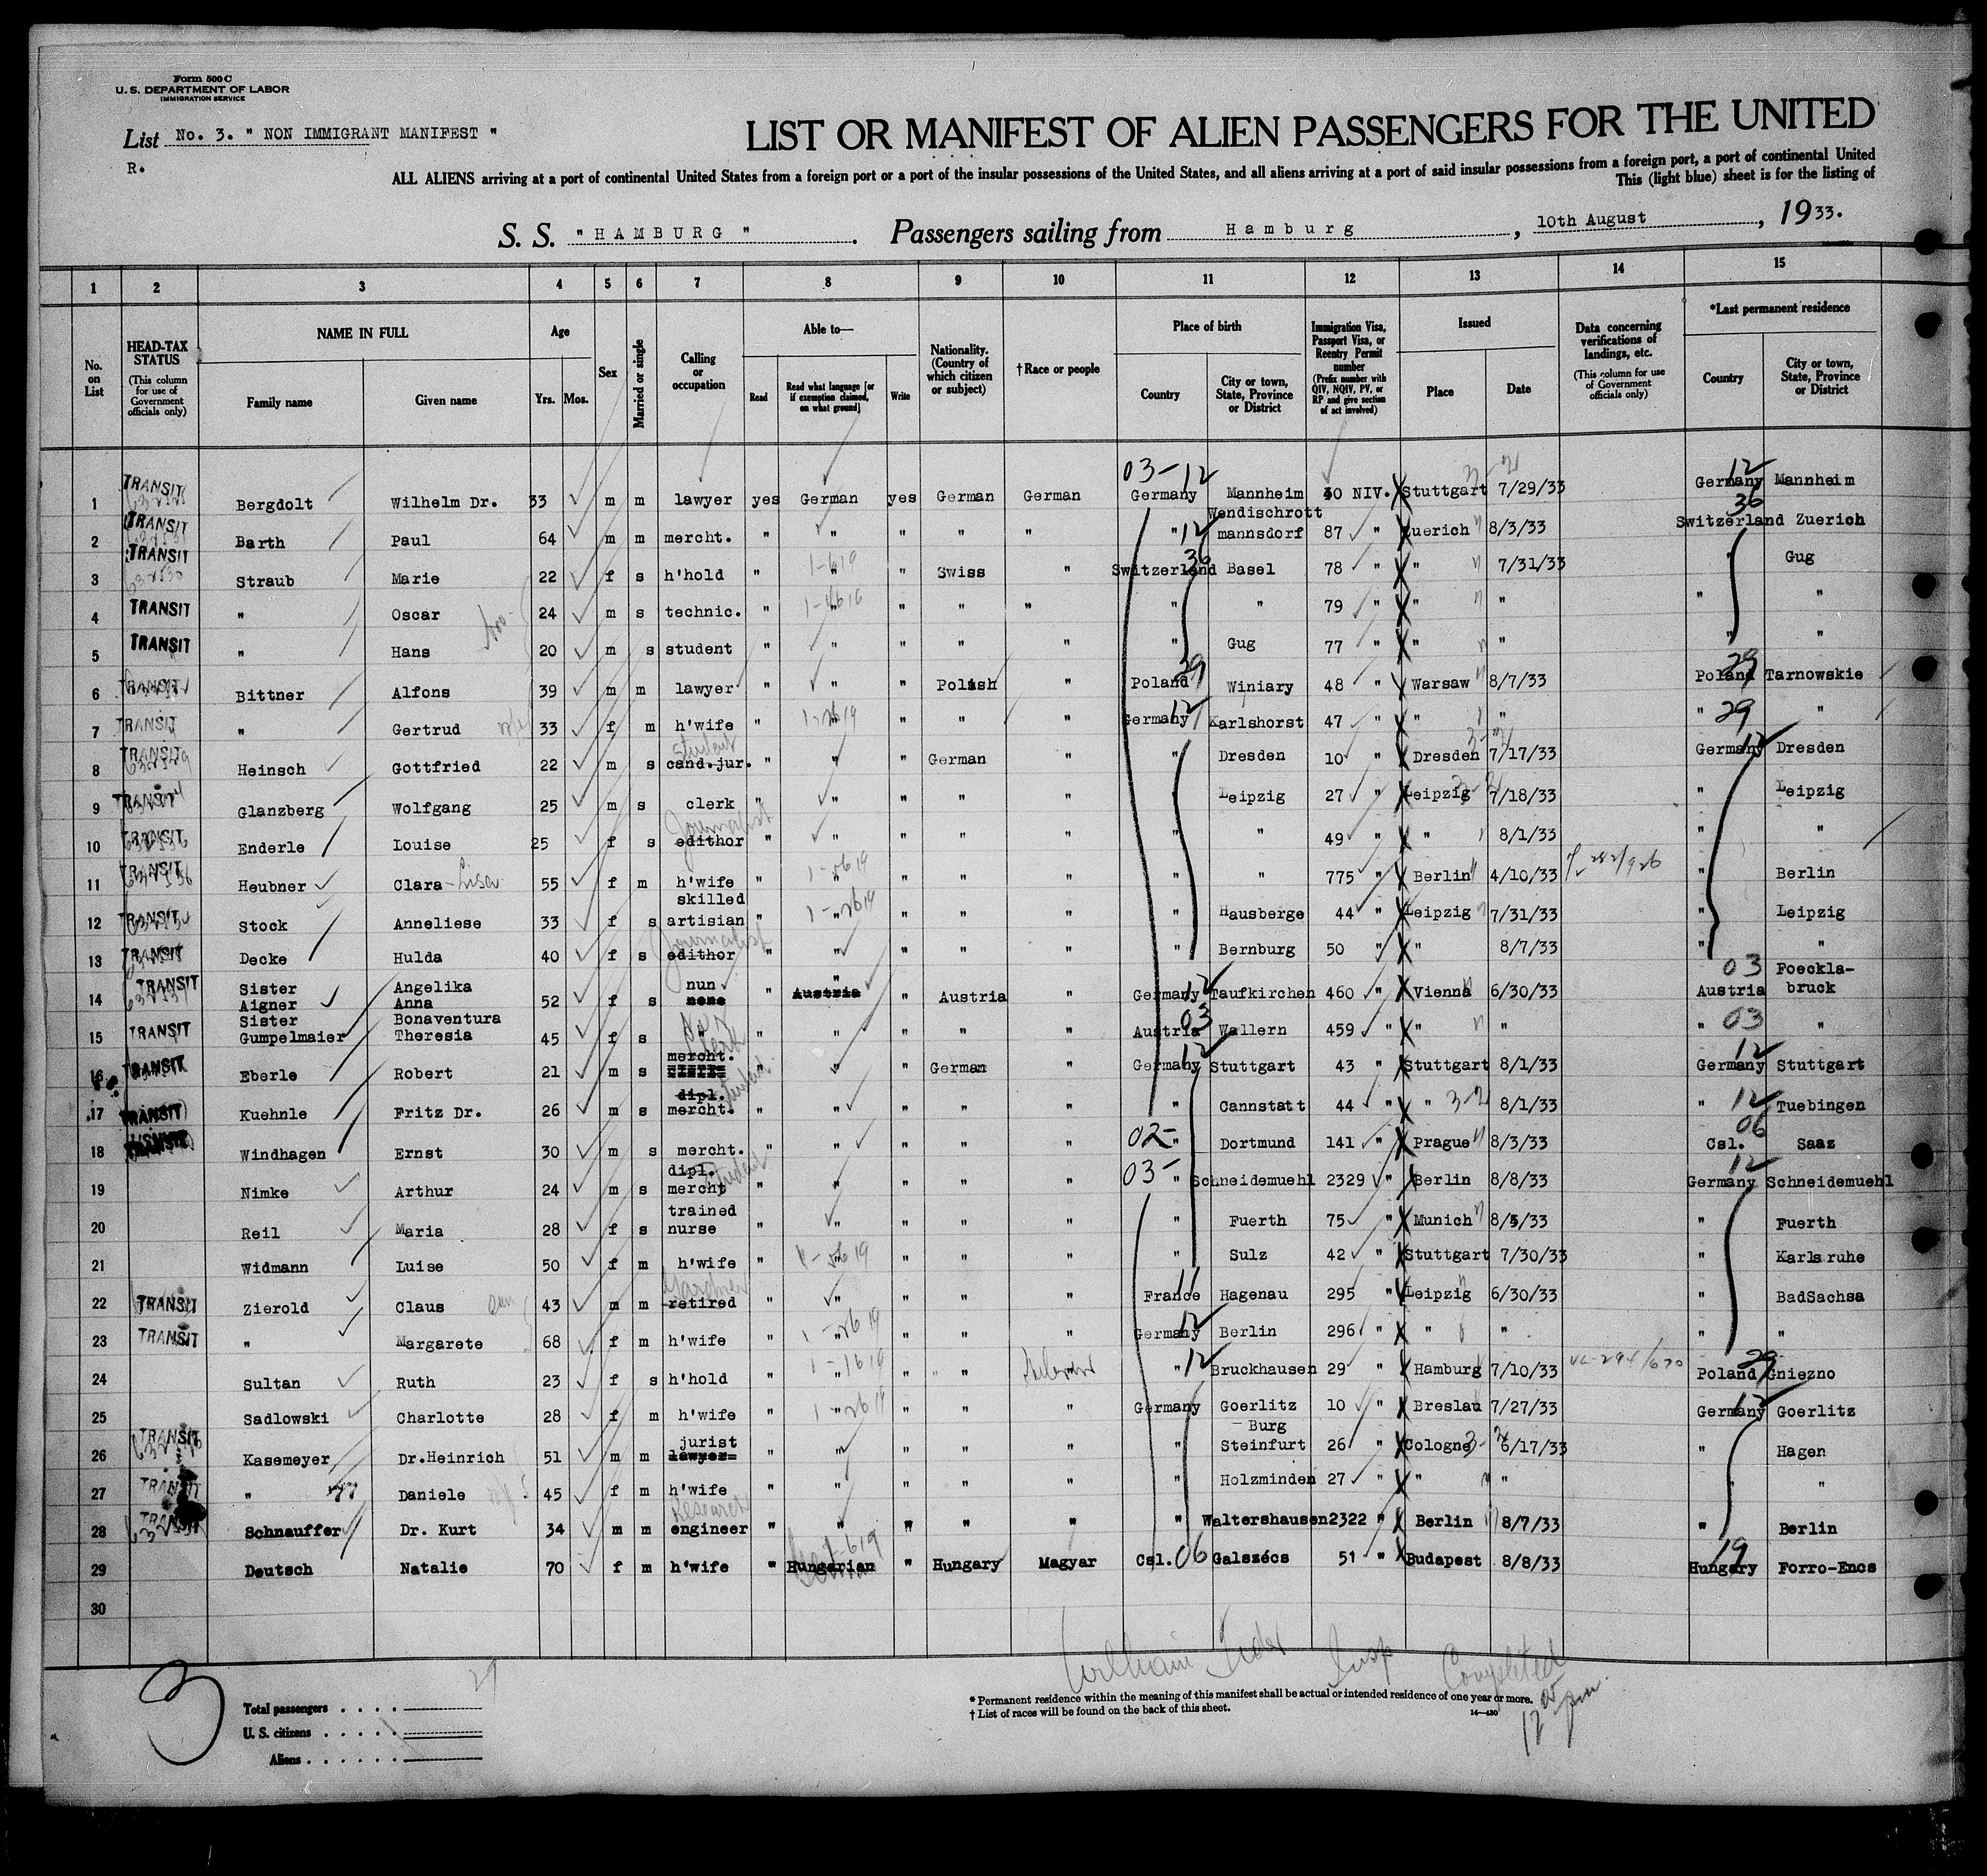 Form 500 C
U. S. DEPARTMENT OF LABOR
IMMIGRATION SERVICE
List No. 3. " NON IMMIGRANT MANIFEST "
R.
LIST OR MANIFEST OF ALIEN PASSENGERS FOR THE UNITED
ALL ALIENS arriving at a port of continental United States from a foreign port or a port of the insular possessions of the United States, and all aliens arriving at a port of said insular possessions from a foreign port, a port of continental United
This (light blue) sheet is for the listing of
S. S. " HAMBURG ". Passengers sailing from Hamburg, 10th August, 1933.
1 2 3 4 5 6 7 8 9 10 11 12 13 14 15
No. on List
HEAD-TAX STATUS (This column for use of Government officials only)
NAME IN FULL Family name Given name
Age Yrs. Mos.
Sex
Married or single
Calling or occupation
Able to— Read Read what language [or if exemption claimed, on what ground] Write
Nationality. (Country of which citizen or subject)
†Race or people
Place of birth Country City or town, State, Province or District
Immigration Visa, Passport Visa, or Reentry Permit number (Prefix number with QIV, NQIV, PV, or RP and give section of act involved)
Issued Place Date
Data concerning verifications of landings, etc. (This column for use of Government officials only)
*Last permanent residence Country City or town, State, Province or District
03-12
1 TRANSIT Bergdolt Wilhelm Dr. 33 m m lawyer yes German yes German German Germany Mannheim 40 NIV. Stuttgart 7/29/33 Germany 12 Mannheim
2 TRANSIT Barth Paul 64 m m mercht. " " " " " " 12 Wendischrott mannsdorf 87 " Zuerich 8/3/33 Switzerland 36 Zuerich
3 TRANSIT Straub Marie 22 f s h'hold " " " Swiss " Switzerland 36 Basel 78 " " 7/31/33 " Gug
4 TRANSIT " Oscar 24 m s technic. " " " " " " " 79 " " " " "
5 TRANSIT " Hans 20 m s student " " " " " " Gug 77 " " " " "
6 TRANSIT Bittner Alfons 39 m m lawyer " " " Polish " Poland 29 Winiary 48 " Warsaw 8/7/33 Poland 29 Tarnowskie
7 TRANSIT " Gertrud 33 f m h'wife " " " " " Germany 12 Karlshorst 47 " " " " 29 "
8 TRANSIT Heinsch Gottfried 22 m s student cand.jur. " " " German " Dresden 10 " Dresden 7/17/33 Germany 12 Dresden
9 TRANSIT Glanzberg Wolfgang 25 m s clerk " " " " " " Leipzig 27 " Leipzig 7/18/33 " Leipzig
10 TRANSIT Enderle Louise 25 f s Journalist edithor " " " " " " 49 " " 8/1/33 " "
11 TRANSIT Heubner Clara - Lisa 55 f m h'wife " " " " " " 775 " Berlin 4/10/33 " Berlin
12 TRANSIT Stock Anneliese 33 f s skilled artisian " " " " " " Hausberge 44 " Leipzig 7/31/33 " Leipzig
13 TRANSIT Decke Hulda 40 f s Journalist edithor " " " " " " Bernburg 50 " " 8/7/33 " "
14 TRANSIT Sister Aigner Angelika Anna 52 f s nun none " " Austria " Austria " Germany 12 Taufkirchen 460 " Vienna 6/30/33 Austria 03 Foeckla-bruck
15 TRANSIT Sister Gumpelmaier Bonaventura Theresia 45 f s " nun " " " " " Austria 03 Wallern 459 " " " " 03 "
16 TRANSIT Eberle Robert 21 m s mercht. clerk " " " German " Germany 12 Stuttgart 43 " Stuttgart 8/1/33 Germany 12 Stuttgart
17 TRANSIT Kuehnle Fritz Dr. 26 m s dipl. mercht. student " " " " " " Cannstatt 44 " " 8/1/33 " 12 Tuebingen
18 TRANSIT Windhagen Ernst 30 m s mercht. " " " " " 02- " Dortmund 141 " Prague 8/3/33 Csl. 06 Saaz
19 Nimke Arthur 24 m s dipl. mercht student " " " " " 03- " Schneidemuehl 2329 " Berlin 8/8/33 Germany 12 Schneidemuehl
20 Reil Maria 28 f s trained nurse " " " " " " Fuerth 75 " Munich 8/5/33 " Fuerth
21 Widmann Luise 50 f m h'wife " " " " " " Sulz 42 " Stuttgart 7/30/33 " Karlsruhe
22 TRANSIT Zierold Claus 43 m m retired " " " " " France 11 Hagenau 295 " Leipzig 6/30/33 " BadSachsa
23 TRANSIT " Margarete 68 f m h'wife " " " " " Germany 12 Berlin 296 " " " " "
24 Sultan Ruth 23 f s h'hold " " " " Hebrew " 12 Bruckhausen 29 " Hamburg 7/10/33 Poland 29 Gniezno
25 Sadlowski Charlotte 28 f m h'wife " " " " " Germany Goerlitz 10 " Breslau 7/27/33 Germany 12 Goerlitz
26 TRANSIT Kasemeyer Dr.Heinrich 51 m m jurist lawyer " " " " " " Burg Steinfurt 26 " Cologne 6/17/33 " Hagen
27 TRANSIT " Daniele 45 f m h'wife " " " " " " Holzminden 27 " " " " "
28 TRANSIT Schnauffer Dr. Kurt 34 m m Research engineer " " " " " " Waltershausen 2322 " Berlin 8/7/33 " Berlin
29 Deutsch Natalie 70 f m h'wife " Hungarian " Hungary Magyar Csl. 06 Galszécs 51 " Budapest 8/8/33 Hungary 19 Forro-Encs
30
William Insp Completed
3
29
Total passengers
U. S. citizens
Aliens
* Permanent residence within the meaning of this manifest shall be actual or intended residence of one year or more.
† List of races will be found on the back of this sheet.
14—430
12 05 pm.